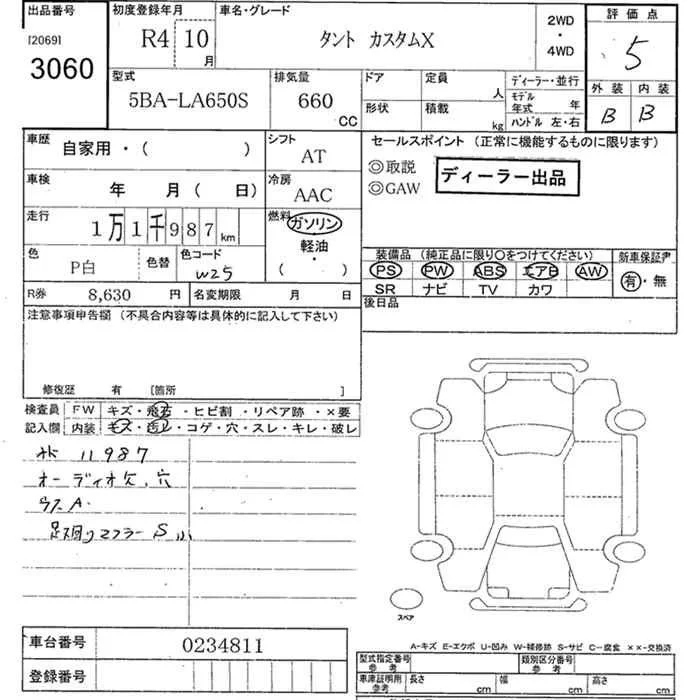 出品番号 初度登録年月 車名・グレード 2WD・4WD 評価点
[2069] R4 10月 タント カスタムX 5
3060
型式 排気量 ドア 定員 人 ディーラー・並行 外装 内装
5BA-LA650S 660 CC 形状 積載 kg モデル年式 年 B B
ハンドル 左・右
車歴 自家用・( ) シフト AT セールスポイント (正常に機能するものに限ります)
◎取説 ディーラー出品
◎GAW
車検 年 月 ( 日) 冷房 AAC
走行 1万1千987km 燃料 ガソリン 軽油・( )
色 P白 色替 色コード W25
装備品 (純正品に限り○をつけてください) 新車保証書
PS PW ABS エアB AW 有・無
SR ナビ TV カワ
R券 8,630 円 名変期限 月 日 後日品
注意事項申告欄 (不具合内容等は具体的に記入して下さい)
修復歴 有 [箇所 ]
検査員 FW キズ・飛石・ヒビ割・リペア跡・×要
記入欄 内装 キズ・汚レ・コゲ・穴・スレ・キレ・破レ
11987
オーディオ欠.穴
A.
足廻りマフラーS小
スペア
A-キズ E-エクボ U-凹み W-補修跡 S-サビ C-腐食 ××-交換済
車台番号 0234811
登録番号
型式指定番号 参考 類別区分番号 参考
車庫証明用 参考 長さ cm 幅 cm 高さ cm